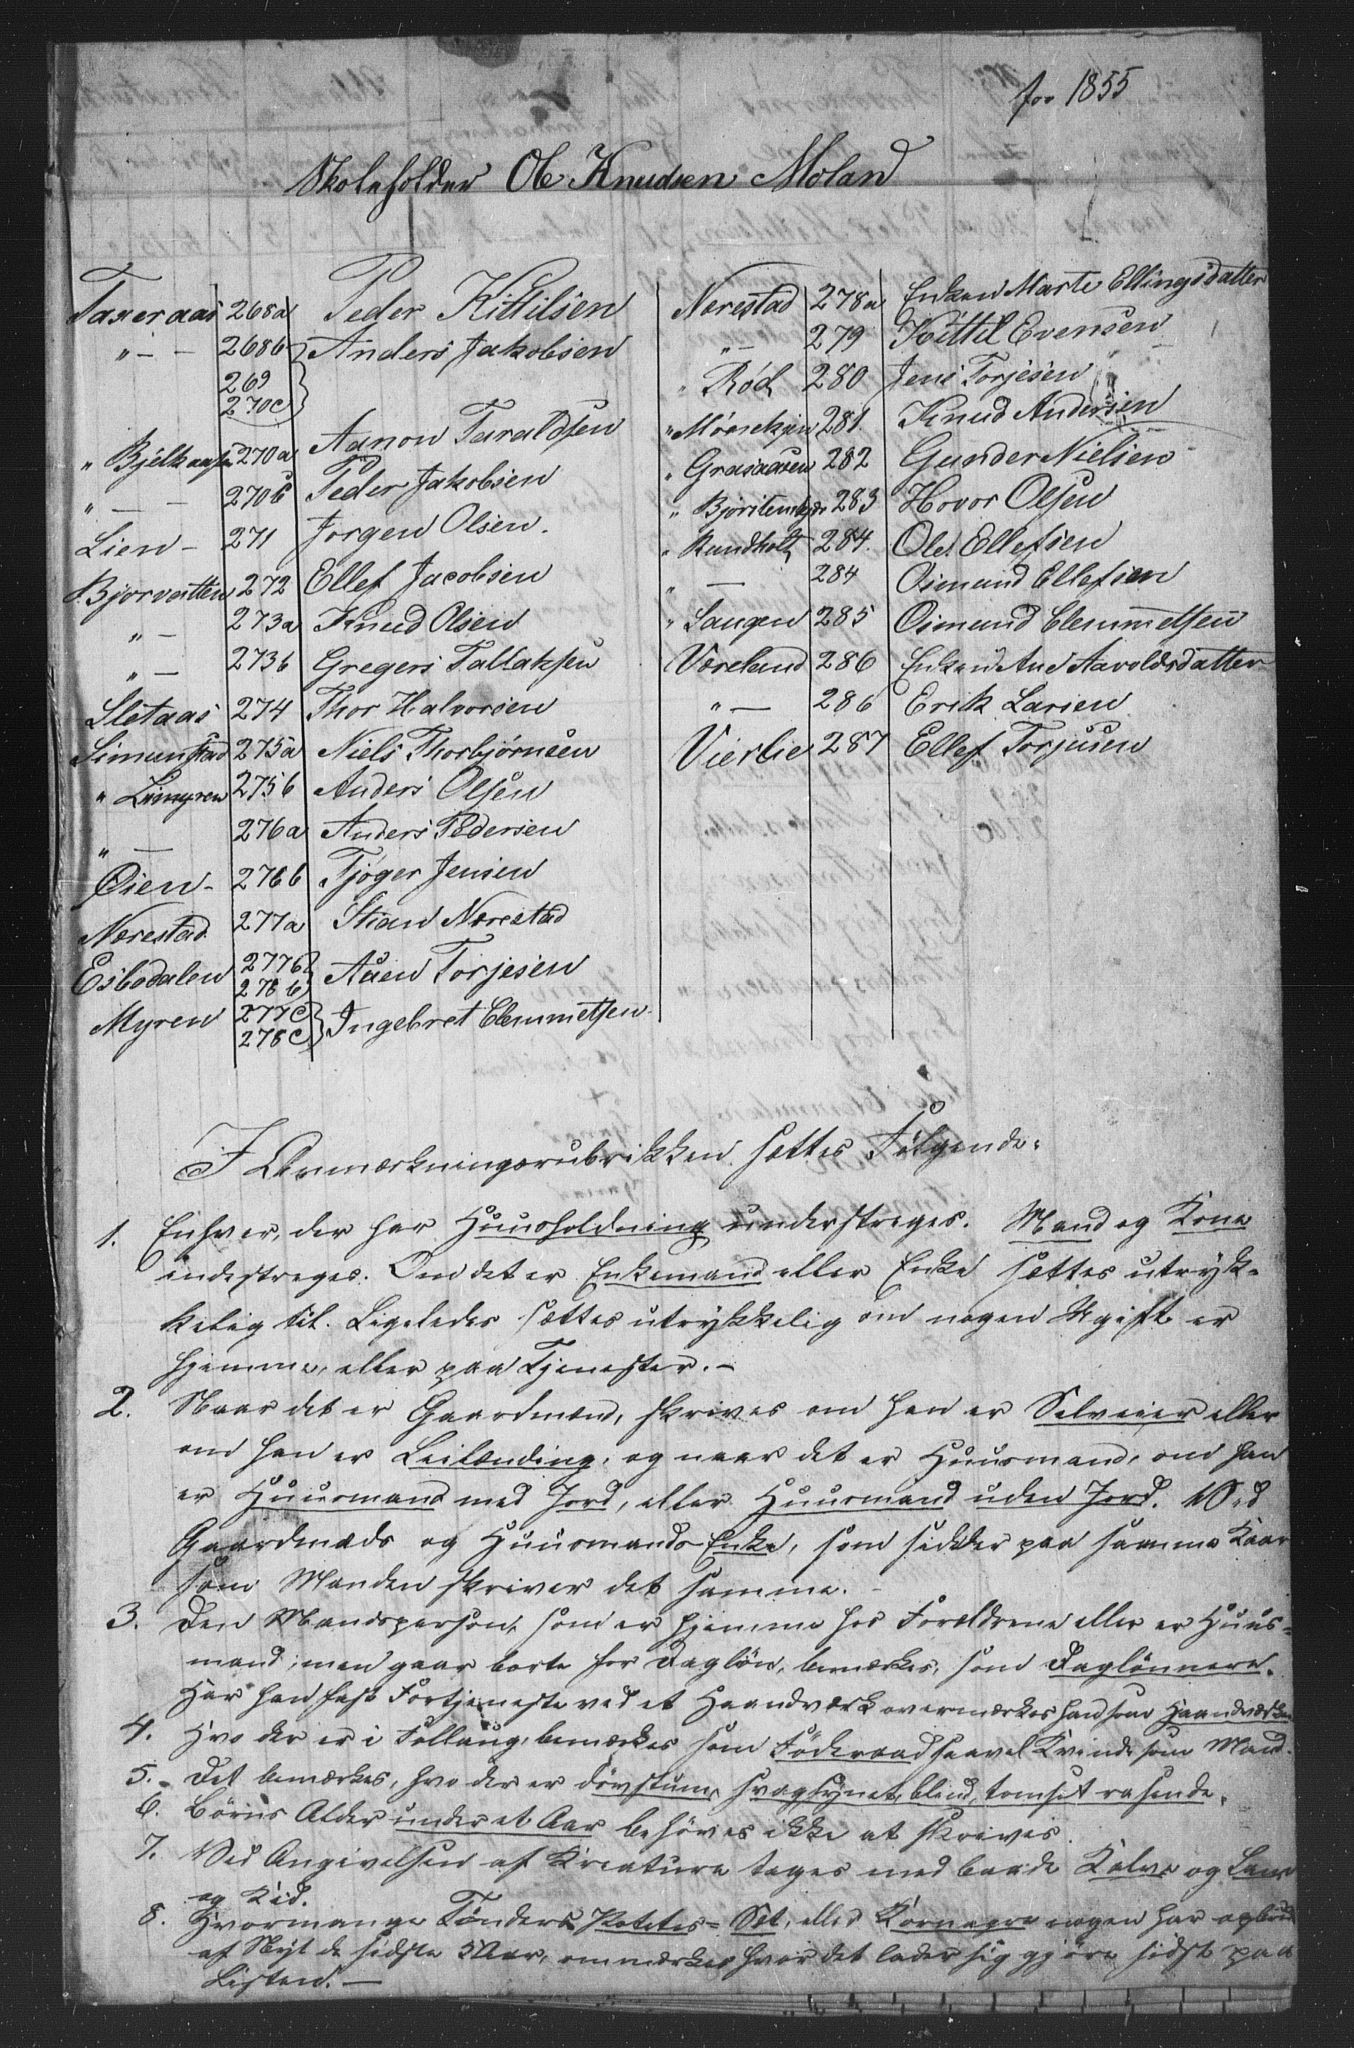 for 1855
Skoleholder Ole Knudsen Moland
Taxeraas 268a Peder Kittilsen
" — — 268b Anders Jakobsen
269
270c
" Bjelkaasen 270a Aanon Taraldsen
" — 270b Peder Jakobsen
Lien — 271 Jørgen Olsen.
Bjorvatten 272 Ellef Jacobsen
" — 273a Knud Olsen
" — 273b Gregers Tallaksen
Sletaas 274 Thor Halvorsen
Simunstad 275a Niels Thorbjørnsen
" 275b Anders Olsen
" — 276a Anders Pedersen
Øien - 276b Tjøger Jensen
Nærestad 277a Stian Nærestad
Esbodalen 277b Auen Torjesen
278b
Myren 277c Ingebret Clemmetsen
278c
Nærestad 278a Enken Marte Ellingsdatter
" — 279 Kittil Evensen
" Rød 280 Jens Torjesen
" 281 Knud Andersen
" Grasaasen 282 Gunder Nielsen
" 283 Hovor Olsen
" Rundholt 284. Ole Ellefsen
" — 284 Osmund Ellefsen
" Laugen 285 Osmund Clemmetsen
Væreland 286 Enken Ane Aavoldsdatter
" — 286 Erik Larsen
Vierlie 287 Ellef Torjusen
I Anmærkningsrubrikken sættes Følgende:
1. Enhver, der har Huusholdning understreges. Mand og Kone
indestreges. Om det er Enkemand eller Enke sættes utryk-
kelig til. Ligeledes sættes utrykkelig om nogen Ugift er
hjemme, eller paa Tjenester. —
2. Naar det er Gaardmænd, skrives om han er Selveier eller
om han er Leilænding, og naar det er Huusmand, om han
er Huusmand med Jord, eller Huusmand uden Jord. Ved
Gaardmæds og Huusmands Enke, som sidder paa samme Kaar
som Manden skriver det samme. —
3. Den Mandsperson, som er hjemme hos Forældrene eller er Huus-
mand, men gaar borte for Dagløn, bemærkes, som Daglønnere.
Har han fast Fortjeneste ved et Haandværk overmærkes han som Haandværker
4. Hvo der er i Follaug, bemærkes som Föderaad saavel Kvinde som Mand.
5. Det bemærkes, hvo der er døvstum, svagsynet, blind, tomset rasende.
6. Börns Alder under et Aar behöves ikke at skrives.
7. Ved Angivelsen af Kreature tages med baade Kalve og Lam
og Kid.
8. Hvormange Tønders Potetes- Sæt, eller Kornagre nogen har opbrudt
af Nyt de sidste 5 Aar, ommærkes hvor det lader sig gjøre sidst paa
Listen. —